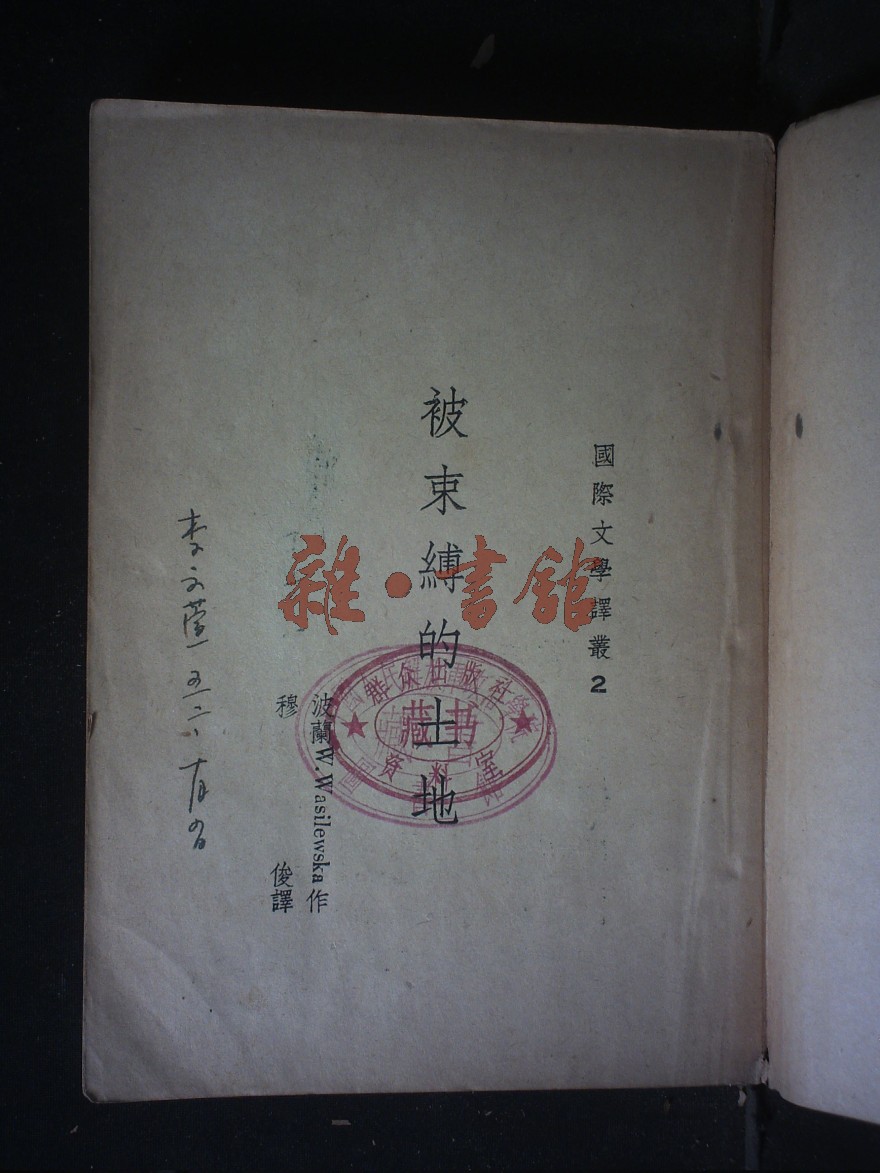 國際文學譯叢2
被束縛的土地
波蘭W.Wasilewska作
穆俊譯
雜·書館
群众出版社
藏书
资料室
李文